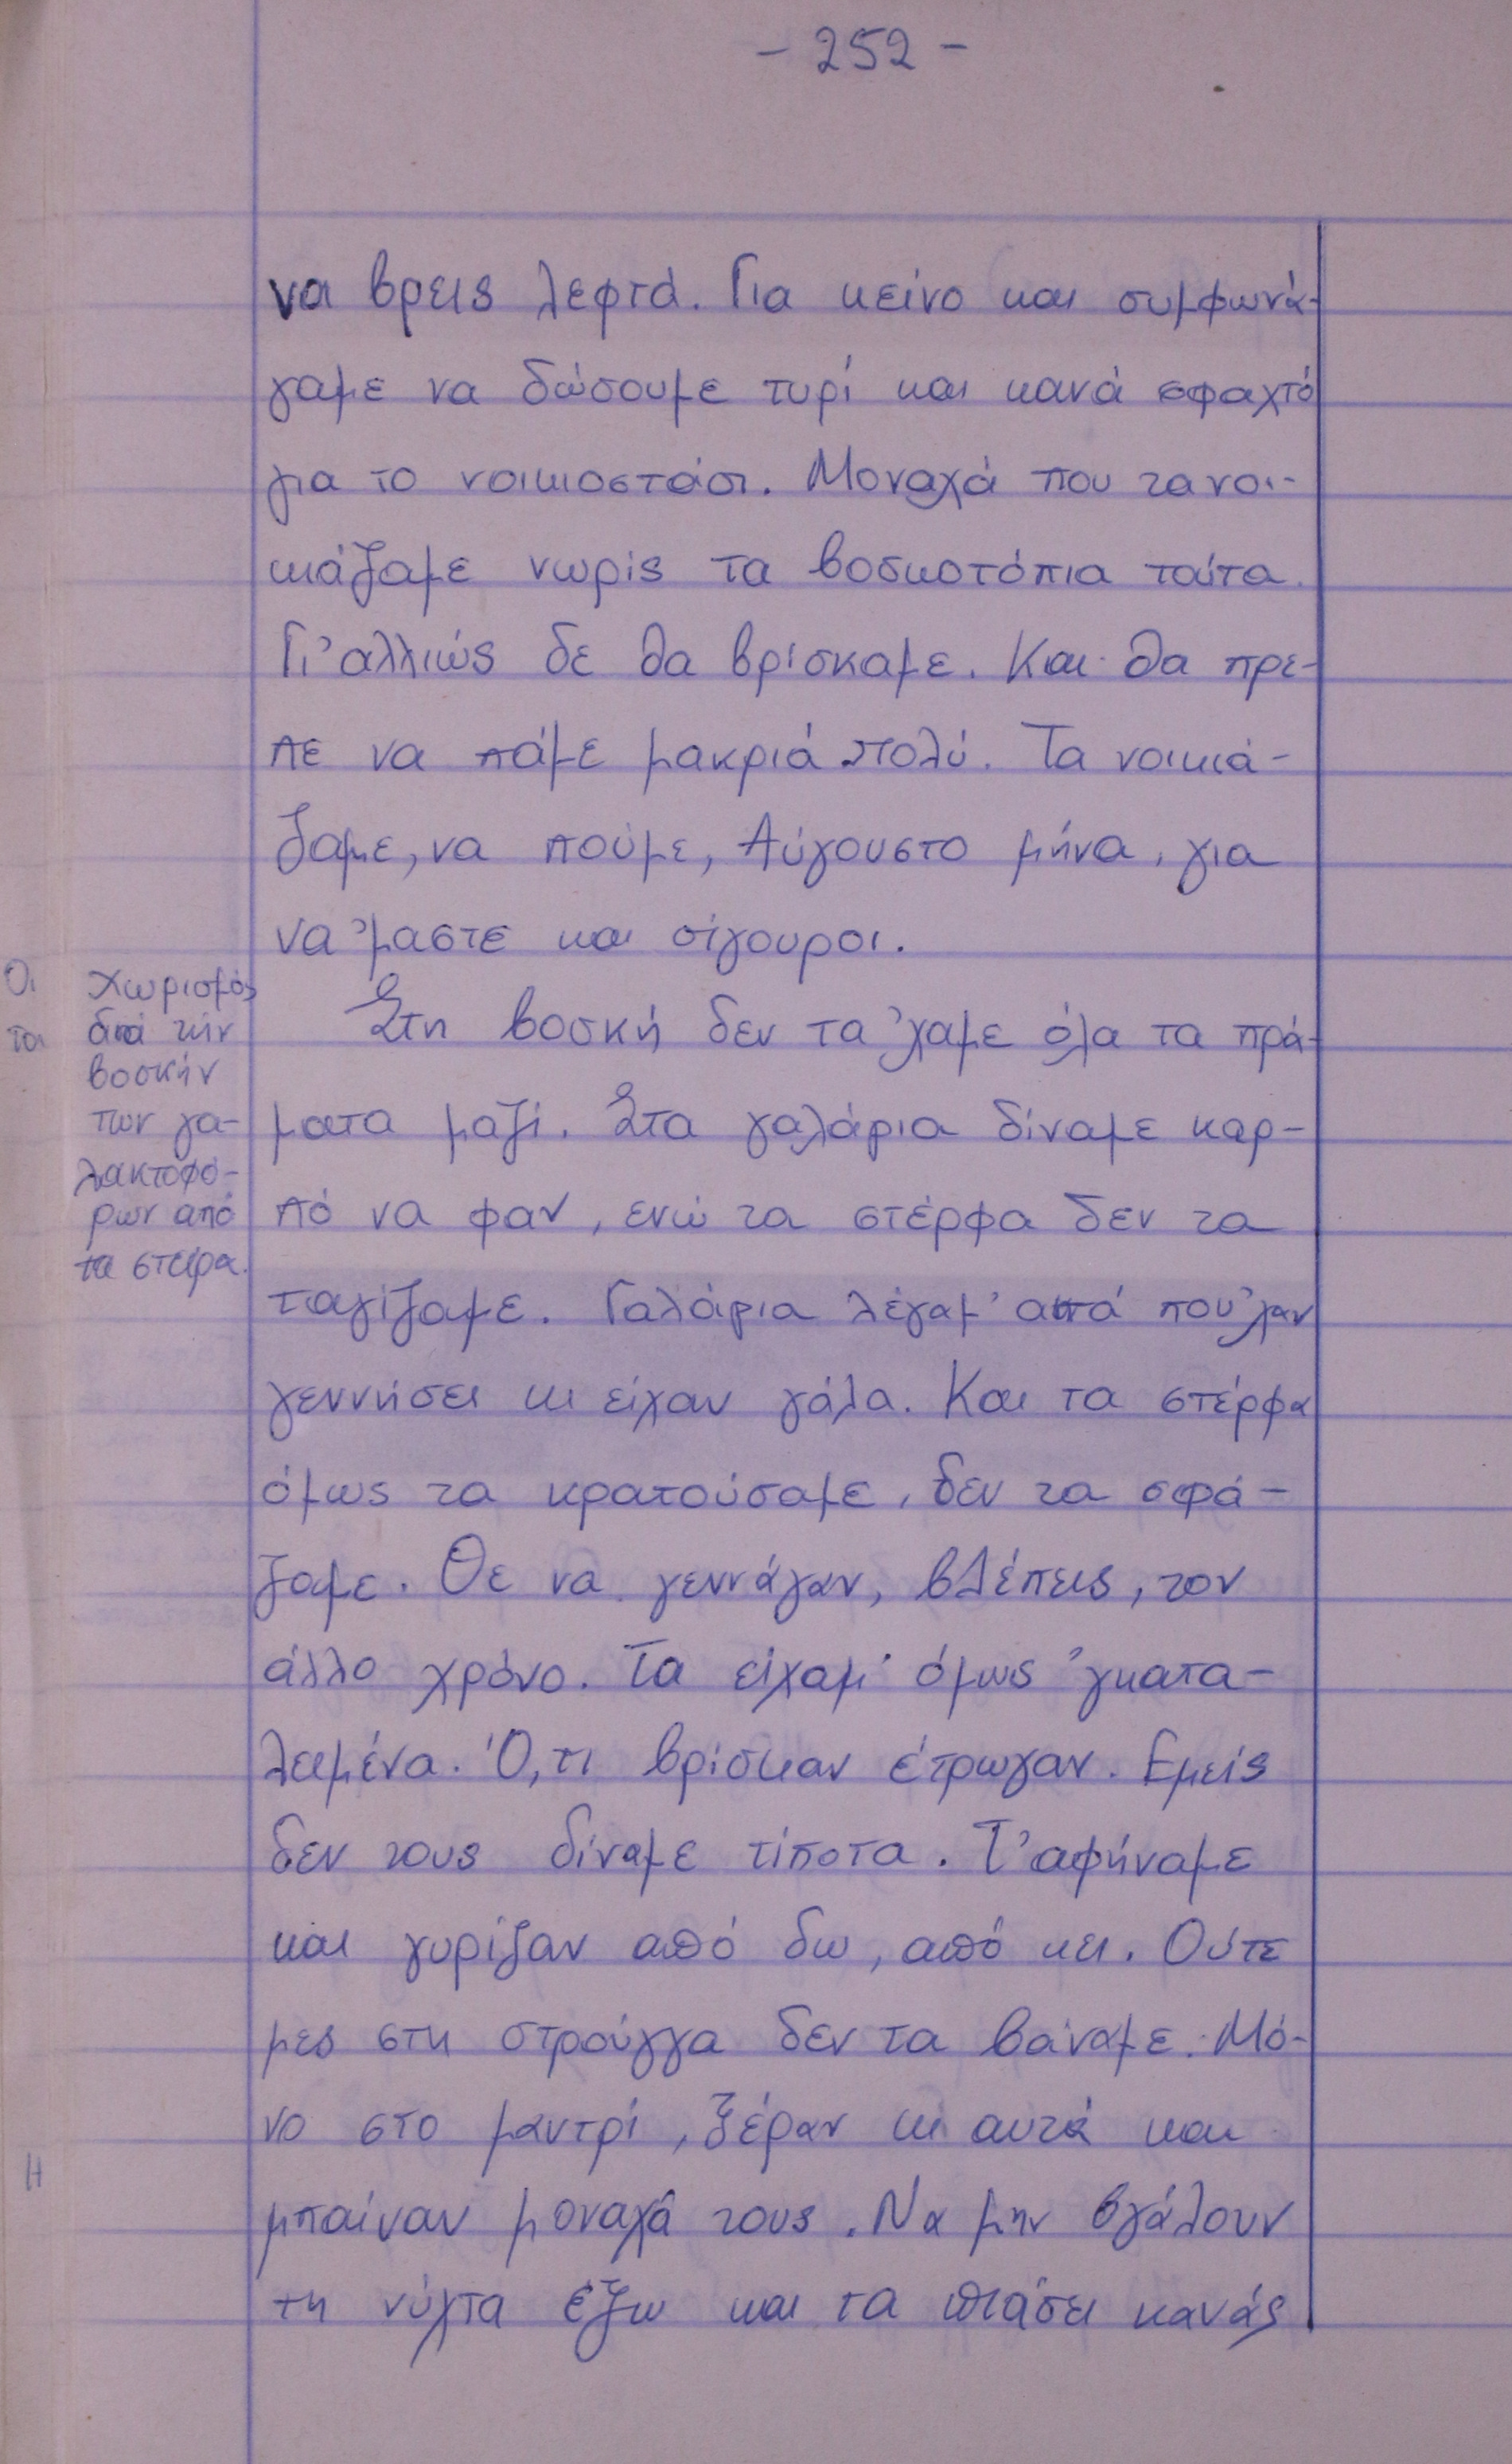 - 252 -
να βρεις λεφτά. Για κείνο και συμφωνά-
γαμε να δώσουμε τυρί και κανά σφαχτό
για το νοικιοστάσι. Μοναχά που τα νοι-
κιάζαμε νωρίς τα βοσκοτόπια ταύτα.
Γι' αλλιώς δε θα βρίσκαμε. Και θα πρε-
πε να πάμε μακριά πολύ. Τα νοικιά-
ζαμε, να πούμε, Αύγουστο μήνα, για
να 'μαστε και σίγουροι.
Στη βοσκή δεν τα 'χαμε όλα τα πρά-
ματα μαζί. Στα γαλάρια δίναμε καρ-
πό να φαν, ενώ τα στέρφα δεν τα
ταγίζαμε. Γαλάρια λέγαμ' αυτά που 'χαν
γεννήσει κι είχαν γάλα. Και τα στέρφα
όμως τα κρατούσαμε, δεν τα σφά-
ζαμε. Θε να γεννάγαν, βλέπεις, τον
άλλο χρόνο. Τα είχαμ' όμως 'γκατα-
λειμένα. Ό,τι βρίσκαν έτρωγαν. Εμείς
δεν τους δίναμε τίποτα. Τ' αφήναμε
και γυρίζαν από δω, από κει. Ούτε
μες στη στρούγγα δεν τα βάναμε. Μό-
νο στο μαντρί, ξέραν κι αυτά και
μπαίναν μοναχά τους. Να μην βγάλουν
τη νύχτα έξω και τα πιάσει κανάς
Χωρισμός
από την
βοσκήν
των γα-
λακτοφό-
ρων από
τα στείρα.
Οι
το
Η